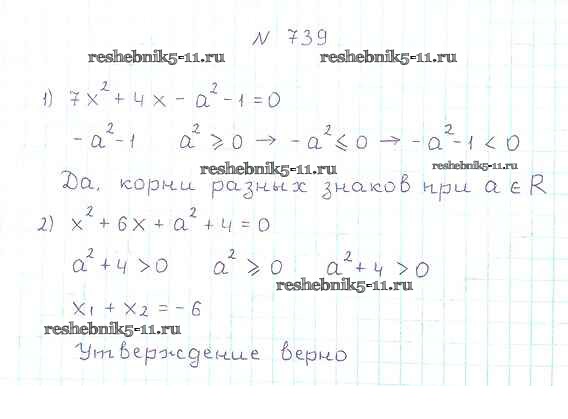 № 739
reshebnik5-11.ru reshebnik5-11.ru
1) 7x² + 4x - a² - 1 = 0
- a² - 1 a² ⩾ 0 → - a² ⩽ 0 → - a² - 1 < 0
reshebnik5-11.ru reshebnik5-11.ru
Да, корни разных знаков при a ∈ R
2) x² + 6x + a² + 4 = 0
a² + 4 > 0 a² ⩾ 0 a² + 4 > 0
reshebnik5-11.ru
x₁ + x₂ = - 6
reshebnik5-11.ru
Утверждение верно